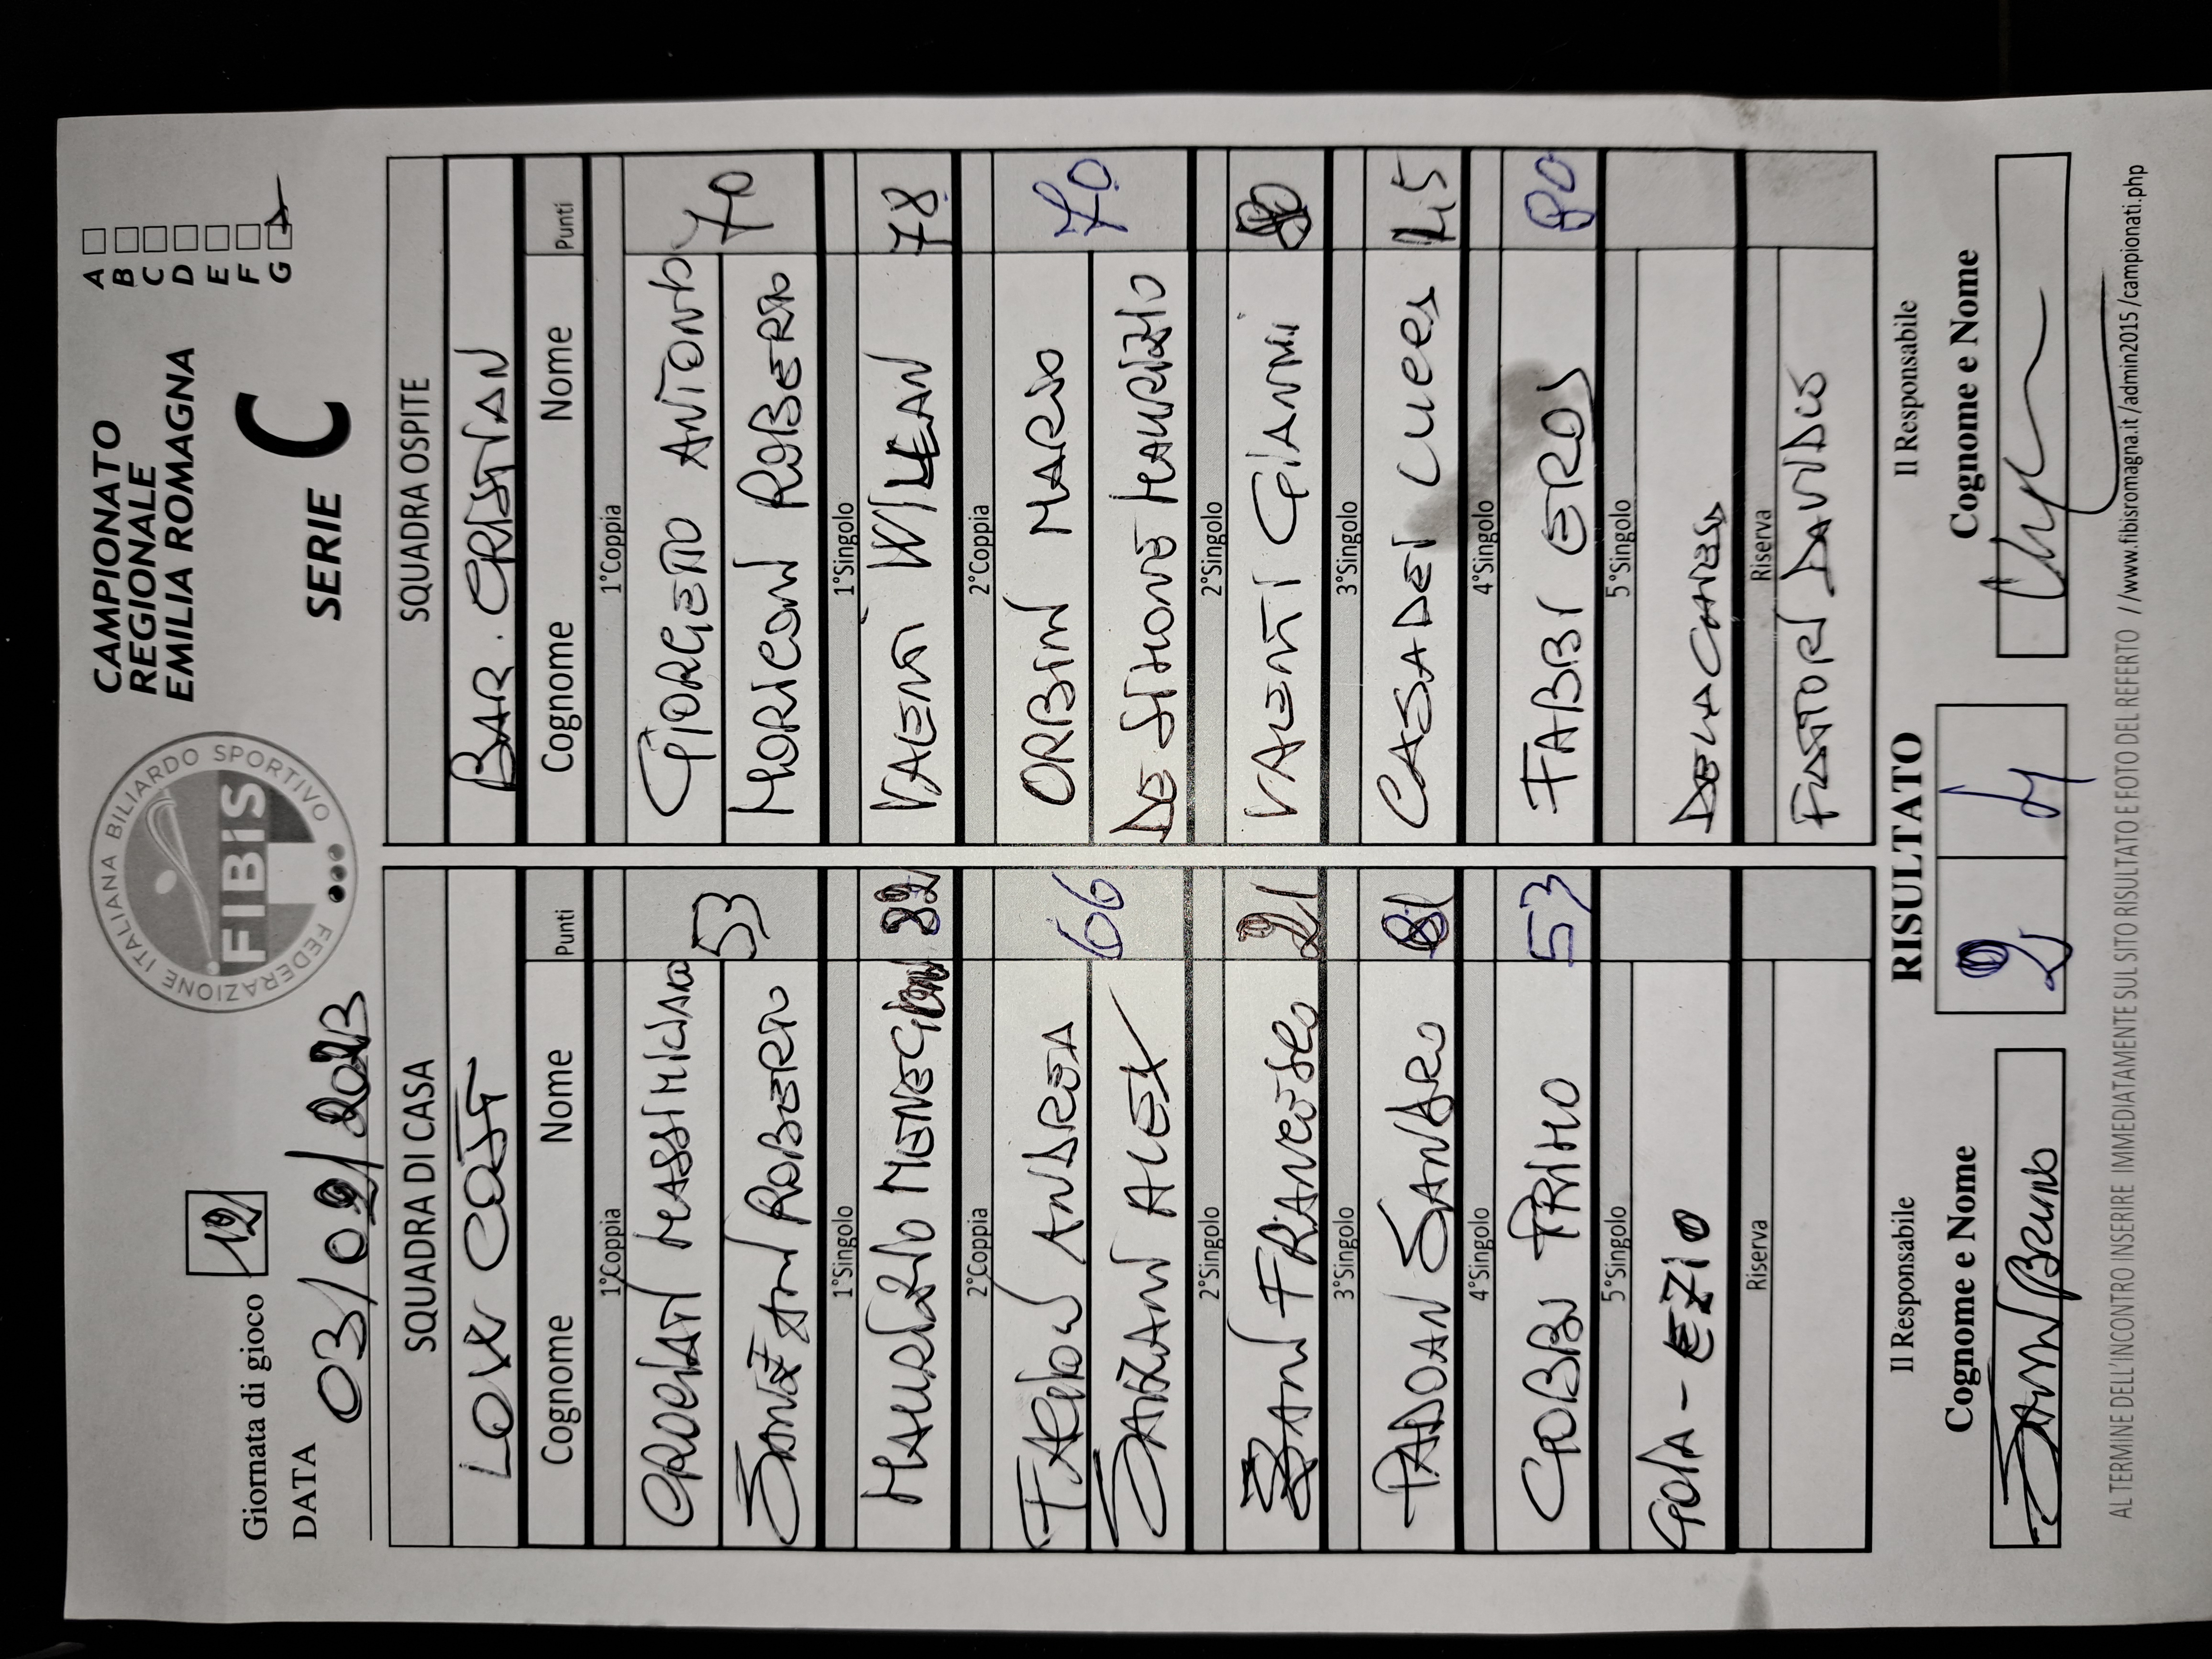 Giornata di gioco 12
DATA 03/02/2023
FEDERAZIONE ITALIANA BILIARDO SPORTIVO
FIBiS
CAMPIONATO
REGIONALE
EMILIA ROMAGNA
SERIE C
A
B
C
D
E
F
G
SQUADRA DI CASA
LOW COST
Cognome Nome Punti
1°Coppia
MASSIMILIANO
53
ROBERTO
1°Singolo
MAURIZIO 82
2°Coppia
ANDREA
66
ALEX
2°Singolo
ZANI FRANCESCO 21
3°Singolo
PADOAN SANDRO 81
4°Singolo
GOBBI PRIMO 53
5°Singolo
GOIA - EZIO
Riserva
SQUADRA OSPITE
BAR. CRISTIAN
Cognome Nome Punti
1°Coppia
GIORGETTO ANTONIO
70
MORICONI ROBERTO
1°Singolo
VALENTI WILLIAN 78
2°Coppia
ORBINI MARIO
70
DE SIMONE MAURIZIO
2°Singolo
VALENTI GIANNI 80
3°Singolo
CASADEI LUCA 45
4°Singolo
FABBI EROS 80
5°Singolo
DELLACHIESA
Riserva
DAVIDE
Il Responsabile
Cognome e Nome
RISULTATO
2 4
Il Responsabile
Cognome e Nome
AL TERMINE DELL'INCONTRO INSERIRE IMMEDIATAMENTE SUL SITO RISULTATO E FOTO DEL REFERTO //www.fibisromagna.it /admin2015 /campionati.php